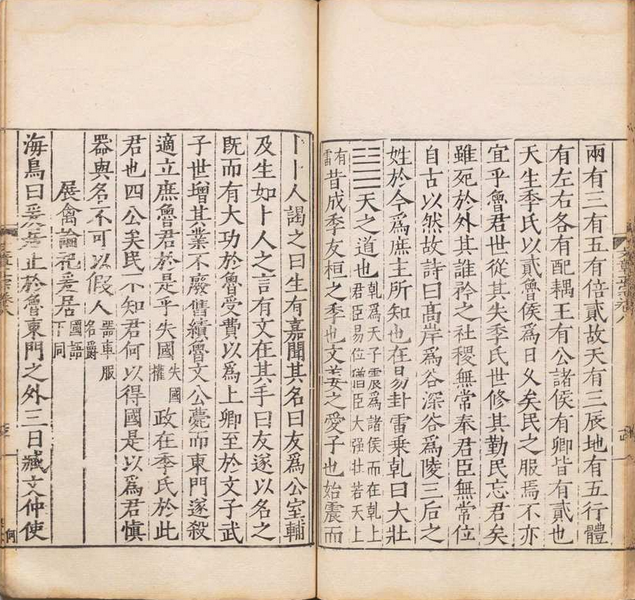 兩有三有五有倍貳故天有三辰地有五行體
有左右各有配耦王有公諸侯有卿皆有貳也
天生季氏以貳魯侯爲日乆矣民之服焉不亦
宜乎魯君世從其失季氏世修其勤民忘君矣
雖死於外其誰矜之社稷無常奉君臣無常位
自古以然故詩曰髙岸爲谷深谷爲陵三后之
姓於今爲庶主所知也在昜卦雷乘乾曰大壯
天之道也乾爲天子震爲諸侯而在乾上君臣易位猶臣大强壮若天上
有雷昔成季友桓之季也文姜之愛子也始震而
卜卜人謁之曰生有嘉聞其名曰友爲公室輔
及生如卜人之言有文在其手曰友遂以名之
旣而有大功於魯受費以爲上卿至於文子武
子世增其業不廢舊績魯文公薨而東門遂殺
適立庶魯君於是乎失國失國權政在季氏於此
君也四公矣民不知君何以得國是以爲君愼
器與名不可以假人器車服名爵
展禽論祀爰居國語下同
海鳥曰爰居止於魯東門之外三日臧文仲使